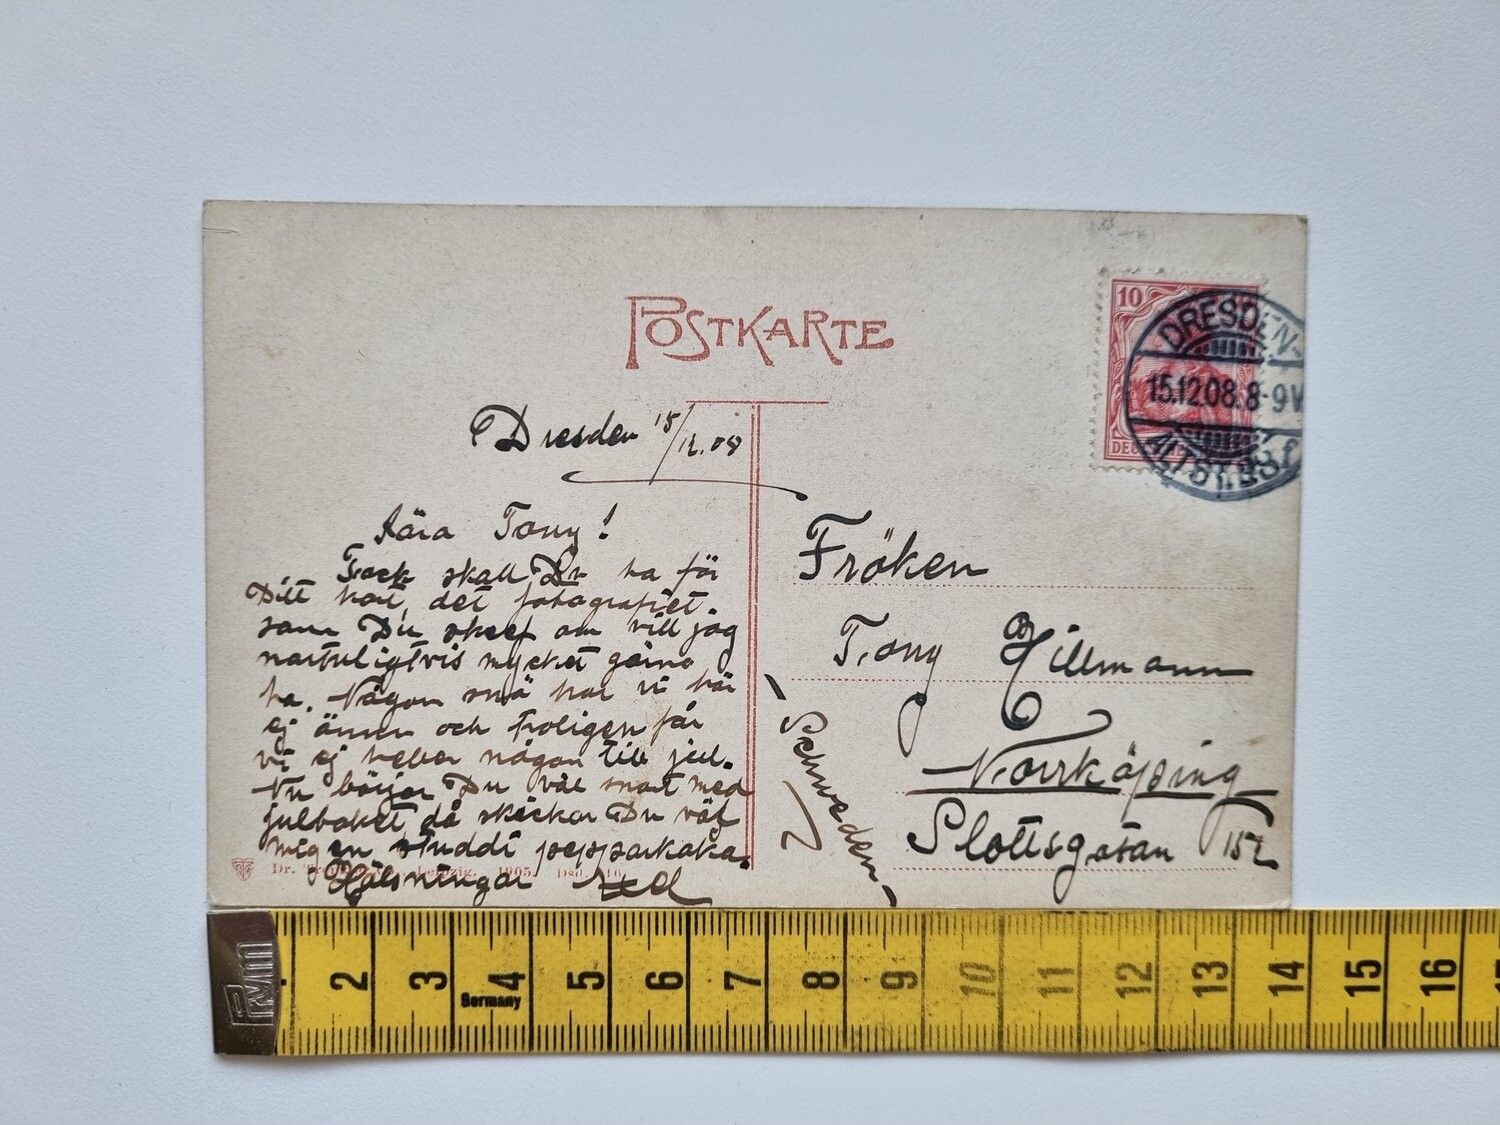 POSTKARTE
10
DEU
DRESDEN-
15.12.08. 8-9V
ALTST.
Dresden 15/12.08
Kära Tony!
Tack skall Du ha för
Ditt kort, det fotografiet
som Du skref om vill jag
naturligtvis mycket gärna
ha. Någon snö har vi här
ej ännu och troligen får
vi ej heller någon till jul.
Nu börjar Du väl snart med
julbaket då skickar Du väl
mig en studdi pepparkaka.
Hälsningar
Dr. Leipzig. 1905.
Fröken
Tony Hillmann
Norrköping
Slottsgatan 152
- Schweden -
PYM
2 3 4 5 6 7 8 9 10 11 12 13 14 15 16
Germany